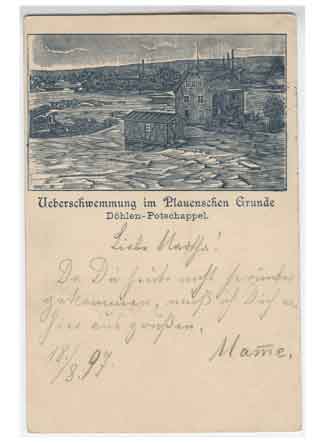 Ueberschwemmung im Plauenschen Grunde
Döhlen-Potschappel.
Liebe Martha!
Da Du heute nicht herunter
gekommen, muß ich Dich von
hier aus grüßen.
18./8.97. Mame.